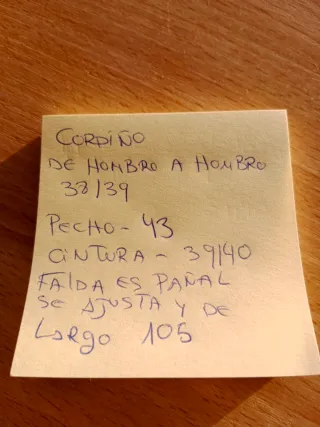 CORPIÑO
DE HOMBRO A HOMBRO
38/39
PECHO - 43
CINTURA - 39/40
FALDA ES PAÑAL
SE AJUSTA Y DE
LARGO 105